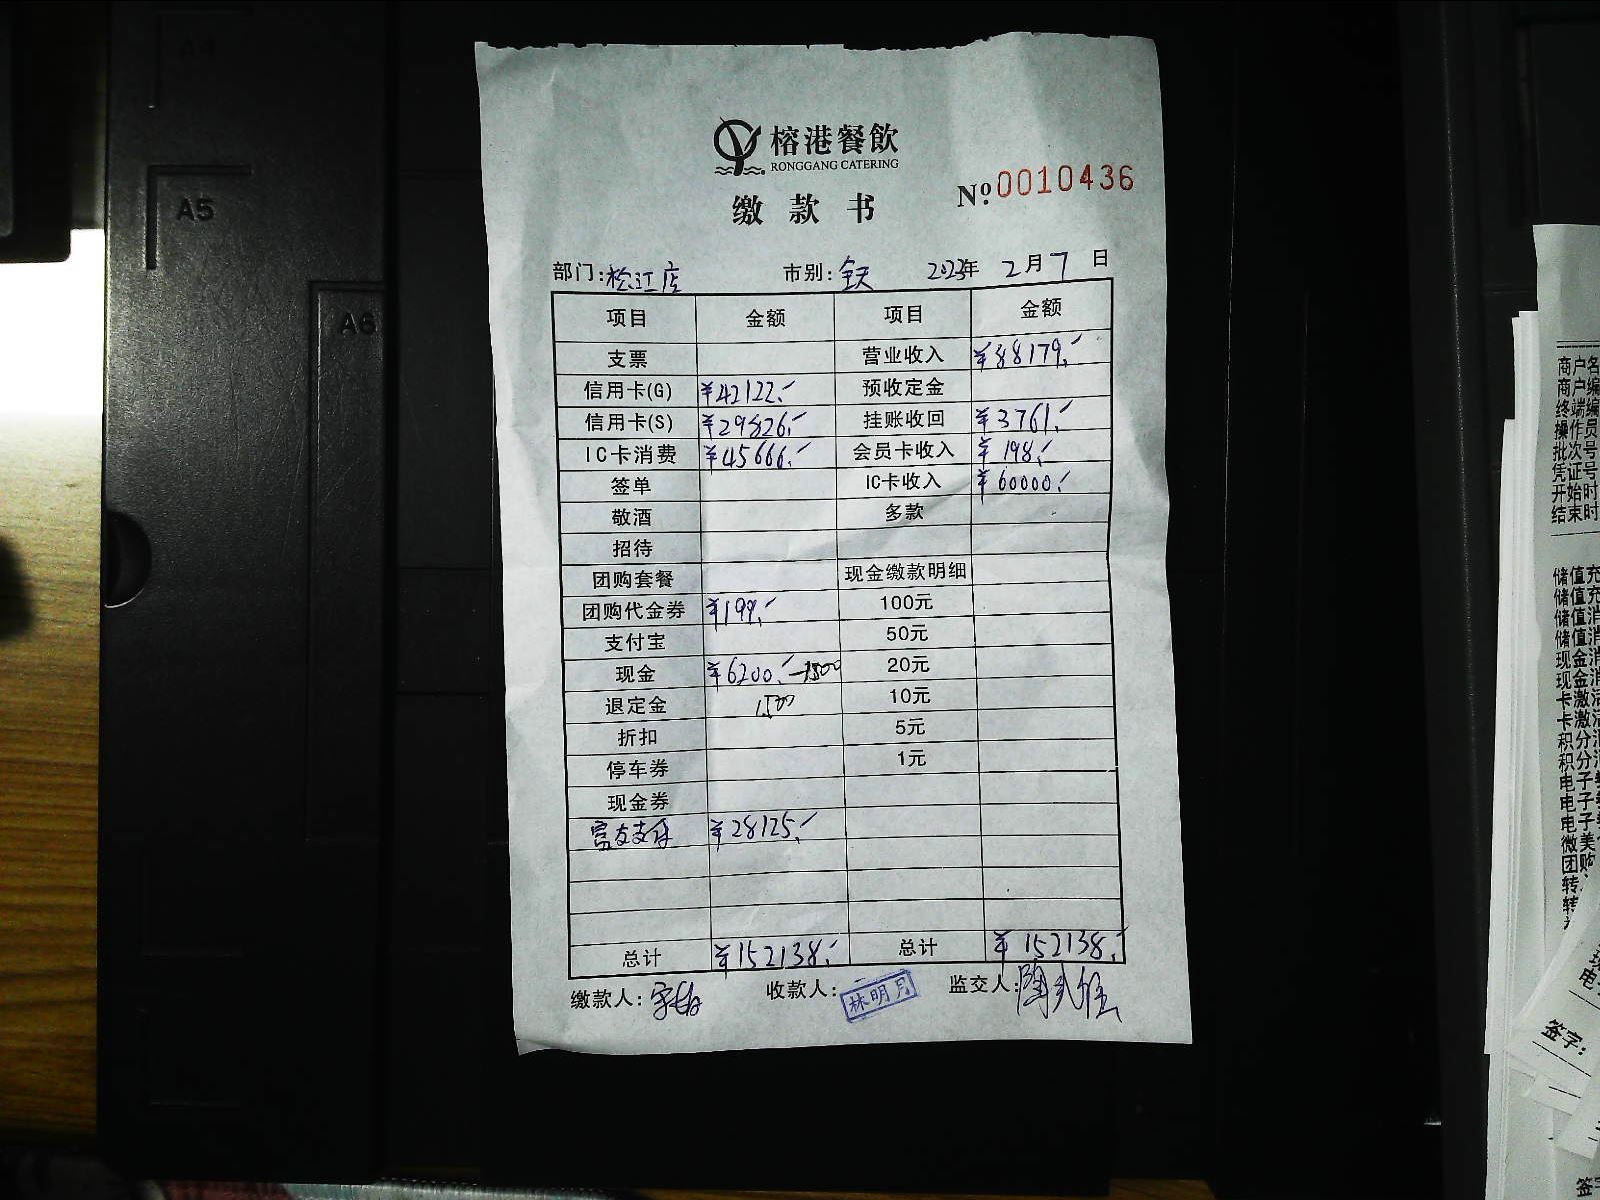 A4
A5
A6
榕港餐飲
RONGGANG CATERING
缴款书
Nº 0010436
部门:松江店 市别:全天 2023年 2月 7日
项目 金额 项目 金额
支票 营业收入 ¥88179.-
信用卡(G) ¥42122.- 预收定金
信用卡(S) ¥29826.- 挂账收回 ¥3761.-
IC卡消费 ¥45666.- 会员卡收入 ¥198.-
签单 IC卡收入 ¥60000.-
敬酒 多款
招待
团购套餐 现金缴款明细
团购代金券 ¥199.- 100元
支付宝 50元
现金 ¥6200.- -1500 20元
退定金 1500 10元
折扣 5元
停车券 1元
现金券
富友支付 ¥28125.-
总计 ¥152138.- 总计 ¥152138.-
缴款人: 收款人:林明月 监交人:
商户名
商户编
终端编
操作员
批次号
凭证号
开始时
结束时
储值充
储值充
储值消
储值消
现金消
现金消
卡激活
卡激活
积分消
积分
电子
电子
电子
微美
团购
转
转
电
签字:
签字